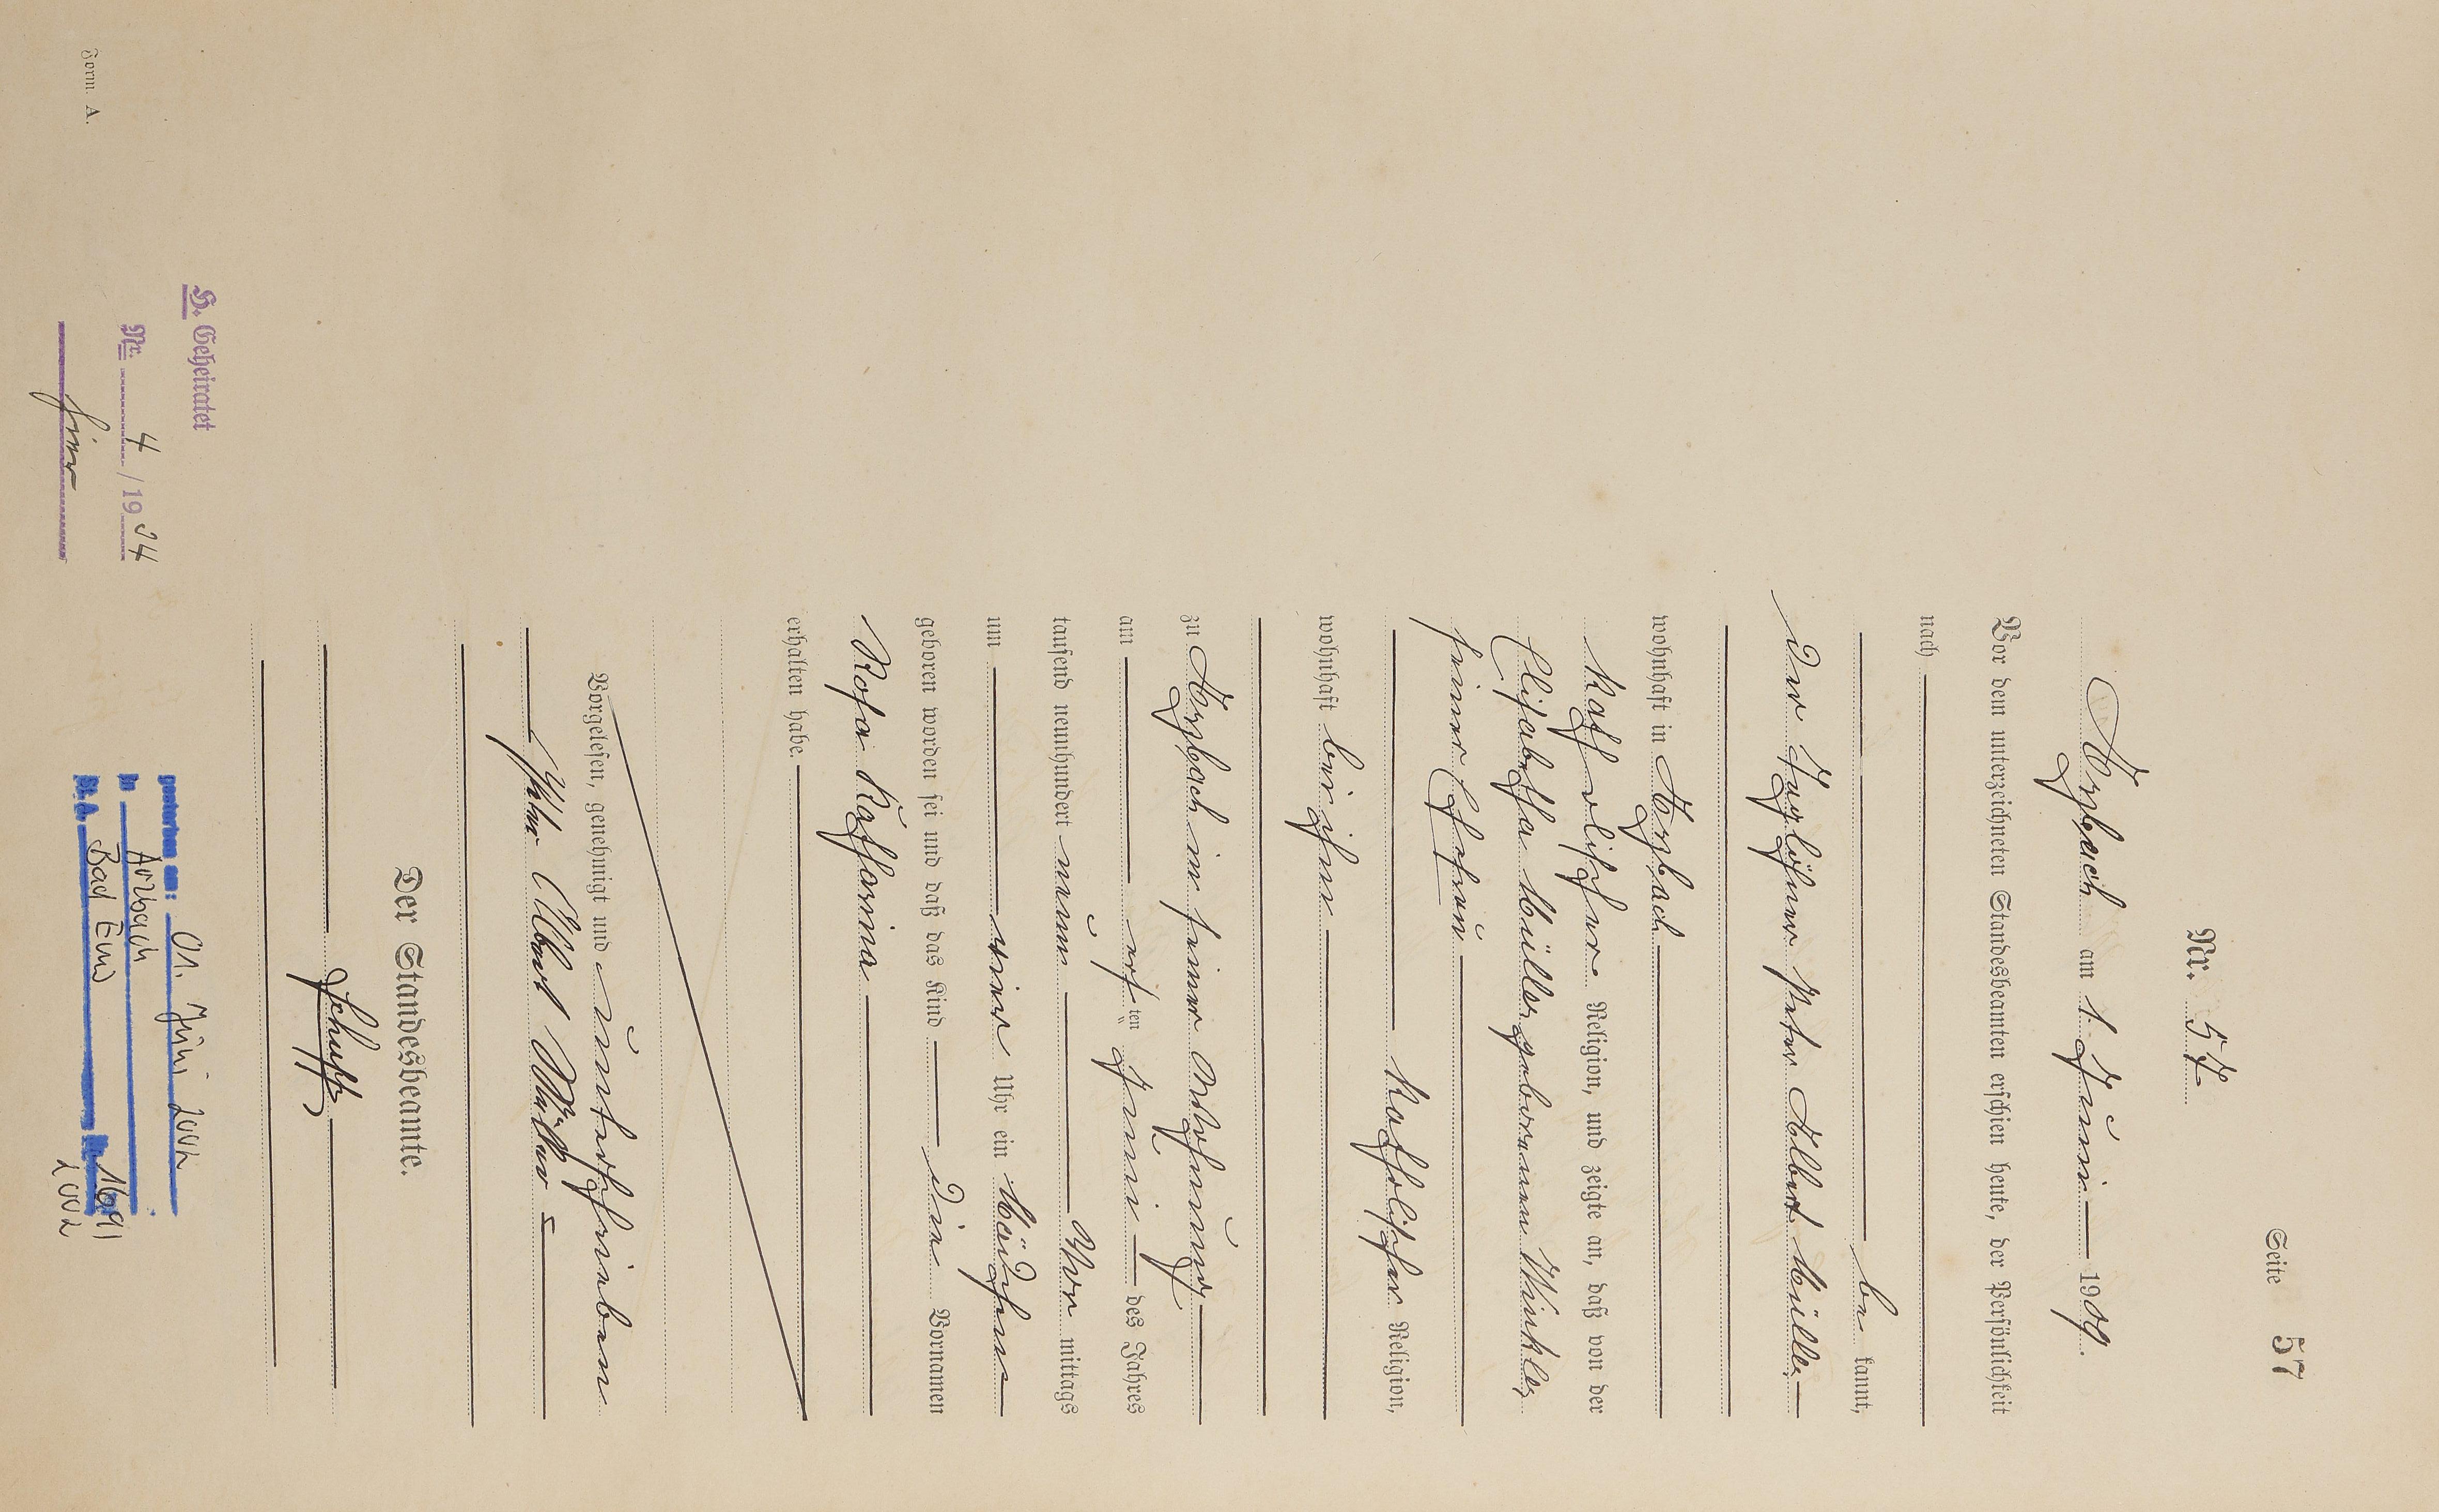 Seite 57
Nr. 57
Arzbach am 1. Juni 1909.
Vor dem unterzeichneten Standesbeamten erschien heute, der Persönlichkeit
nach
be kannt,
Der Taglöhner Peter Albert Müller
wohnhaft in Arzbach
katholischer Religion, und zeigte an, daß von der
Elisabetha Müller geborenen Winkler
seiner Ehefrau
katholischer Religion,
wohnhaft bei ihm
zu Arzbach in seiner Wohnung
am ersten Juni des Jahres
tausend neunhundert neun Vor mittags
um Uhr ein Mädchen
geboren worden sei und daß das Kind die Vornamen
Rosa Katharina
erhalten habe.
Vorgelesen, genehmigt und unterschrieben
Peter Albert Müller
Der Standesbeamte.
Schupp
H. Geheiratet
Nr. 4 / 1934
hier
gestorben am: 01. Juni 2002
in Arzbach
St.A. Bad Ems Nr. 169/
2002
Form. A.